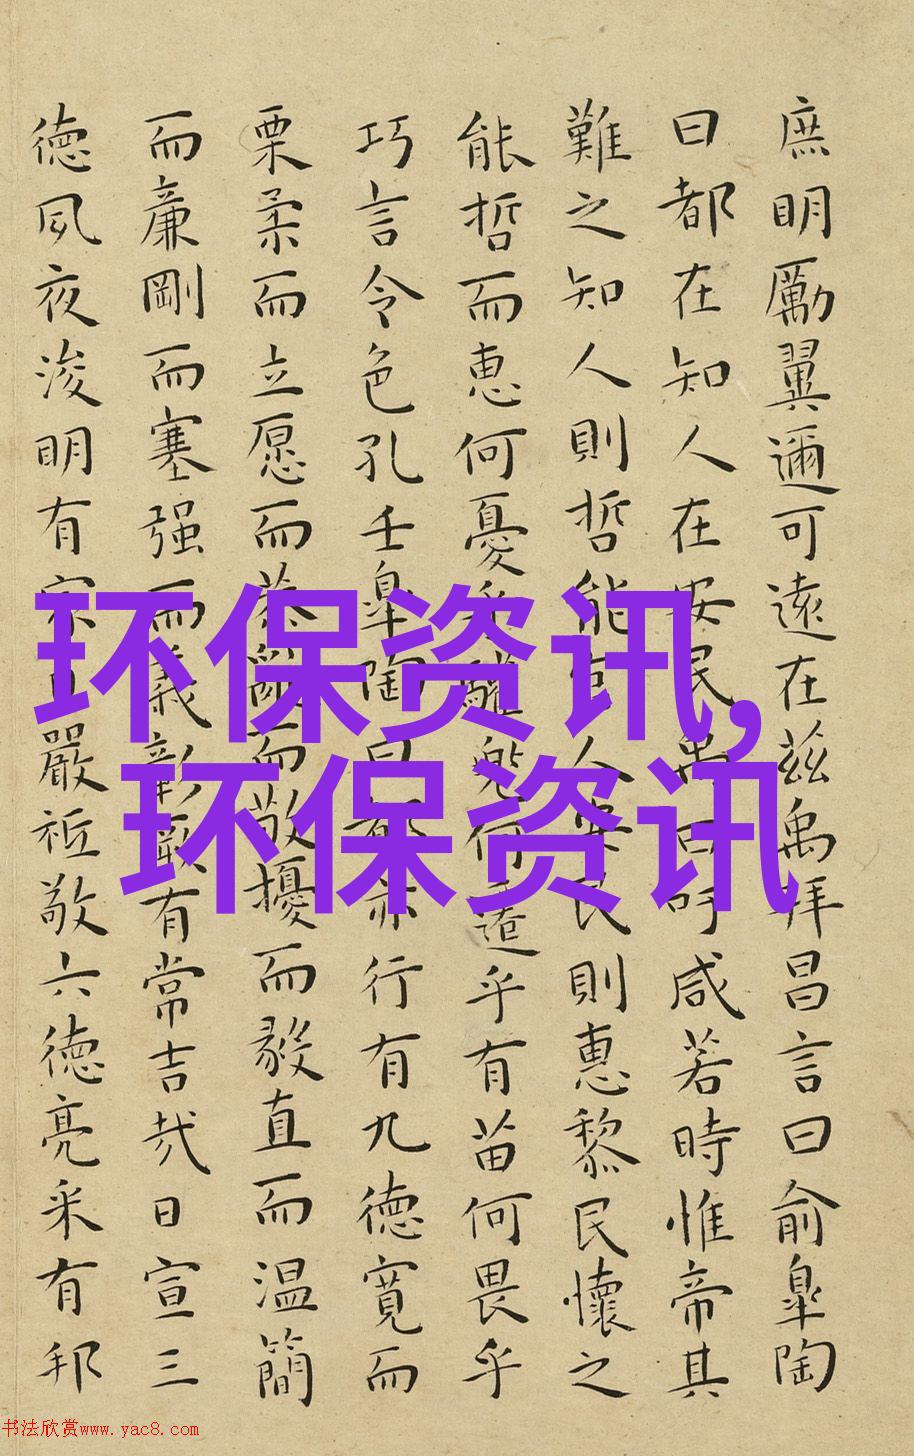 庶明厲翼邇可遠在兹禹拜昌言曰俞皐陶
曰都在知人在安民禹曰吁咸若時惟帝其
難之知人則哲能官人安民則惠黎民懷之
能哲而惠何憂乎驩兜何遷乎有苗何畏乎
巧言令色孔壬皐陶曰都亦行有九德寬而
栗柔而立愿而恭亂而敬擾而毅直而温簡
而廉剛而塞强而義彰厥有常吉哉日宣三
德夙夜浚明有家日嚴祗敬六德亮采有邦
环保资讯,
环保资讯
书法欣赏www.yac8.com